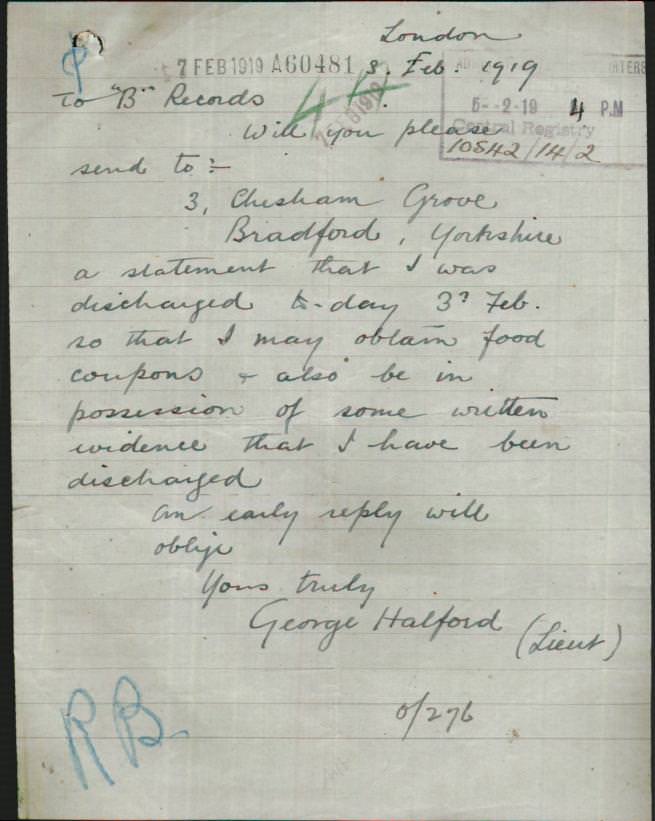 London
7 FEB 1919 A60481 3. Feb. 1919
To "B" Records
5--2-19 4 P.M
Central Registry
10542/14/2
Will you please
send to :-
3, Chesham Grove
Bradford, Yorkshire
a statement that I was
discharged to-day 3rd Feb.
so that I may obtain food
coupons & also be in
possession of some written
evidence that I have been
discharged
An early reply will
oblige
Yours truly
George Halford (Lieut)
0/276
RB.